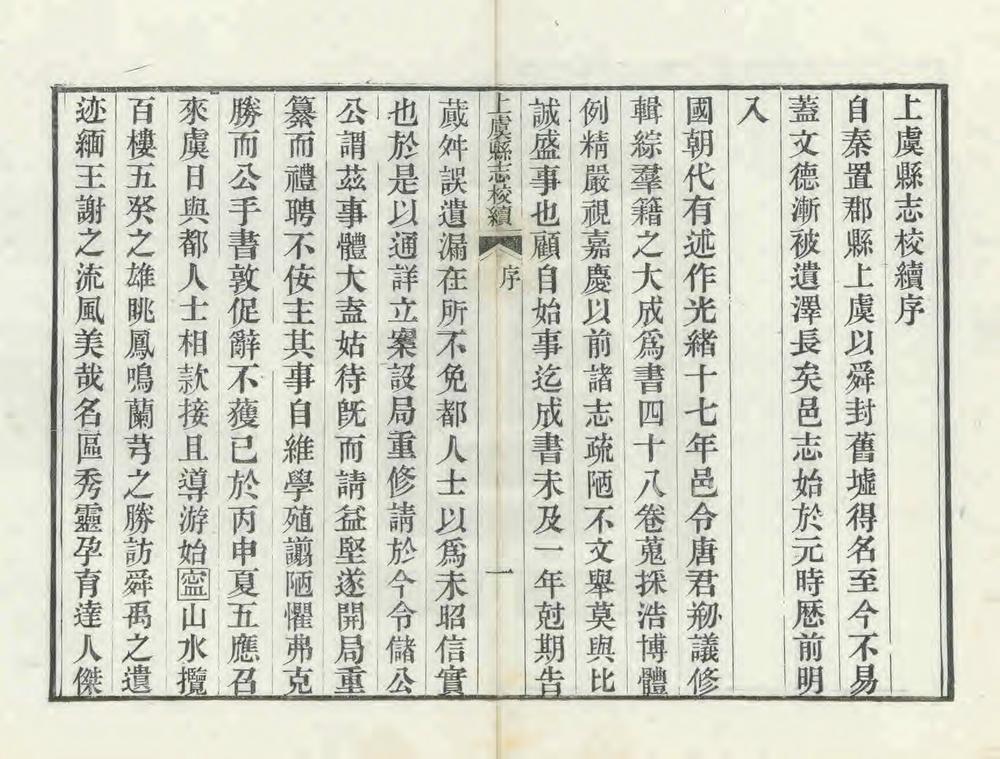 上虞縣志校續序
自秦置郡縣上虞以舜封舊墟得名至今不易
蓋文德漸被遺澤長矣邑志始於元時歷前明
入
國朝代有述作光緒十七年邑令唐君刱議修
輯綜羣籍之大成爲書四十八卷蒐採浩博體
例精嚴視嘉慶以前諸志疏陋不文舉莫與比
誠盛事也顧自始事迄成書未及一年尅期告
上虞縣志校續
序
一
蕆舛誤遺漏在所不免都人士以爲未昭信實
也於是以通詳立案設局重修請於今令儲公
公謂茲事體大盍姑待旣而請益堅遂開局重
纂而禮聘不佞主其事自維學殖譾陋懼弗克
勝而公手書敦促辭不獲已於丙申夏五應召
來虞日與都人士相款接且導游始寍山水攬
百樓五癸之雄眺鳳鳴蘭芎之勝訪舜禹之遺
迹緬王謝之流風美哉名區秀靈孕育達人傑